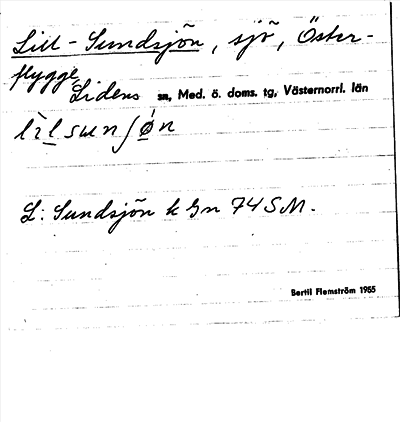 Lill-Sundsjön, sjö, Öster-
flygge
Lidens sn, Med. ö. doms. tg, Västernorrl. län
lìlsunʃøn
L: Sundsjön k Gn 74 SM.
Bertil Flemström 1955